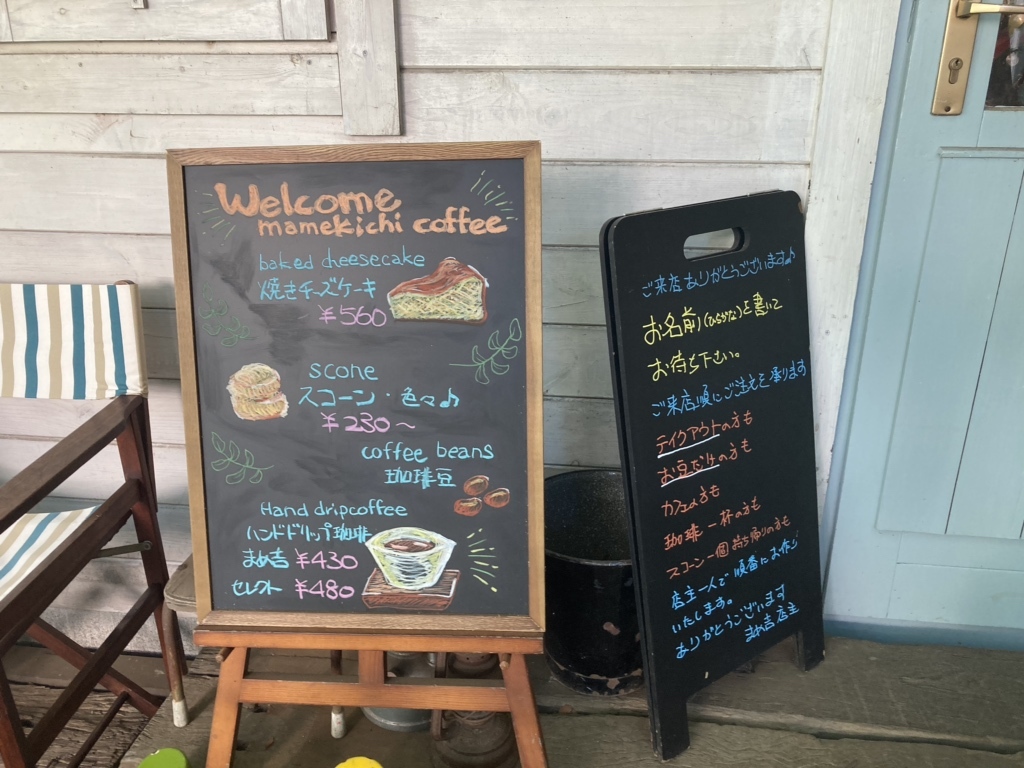 Welcome
mamekichi coffee
baked cheesecake
焼きチーズケーキ
¥560
scone
スコーン・色々♪
¥230～
coffee beans
珈琲豆
Hand dripcoffee
ハンドドリップ珈琲
まめ吉 ¥430
セレクト ¥480
ご来店ありがとうございます♪
お名前(ひらがな)を書いて
お待ち下さい。
ご来店順にご注文を承ります
テイクアウトの方も
お豆だけの方も
カフェの方も
珈琲一杯の方も
スコーン一個持ち帰りの方も
店主一人で順番にお作り
いたします。
ありがとうございます
まめ吉店主